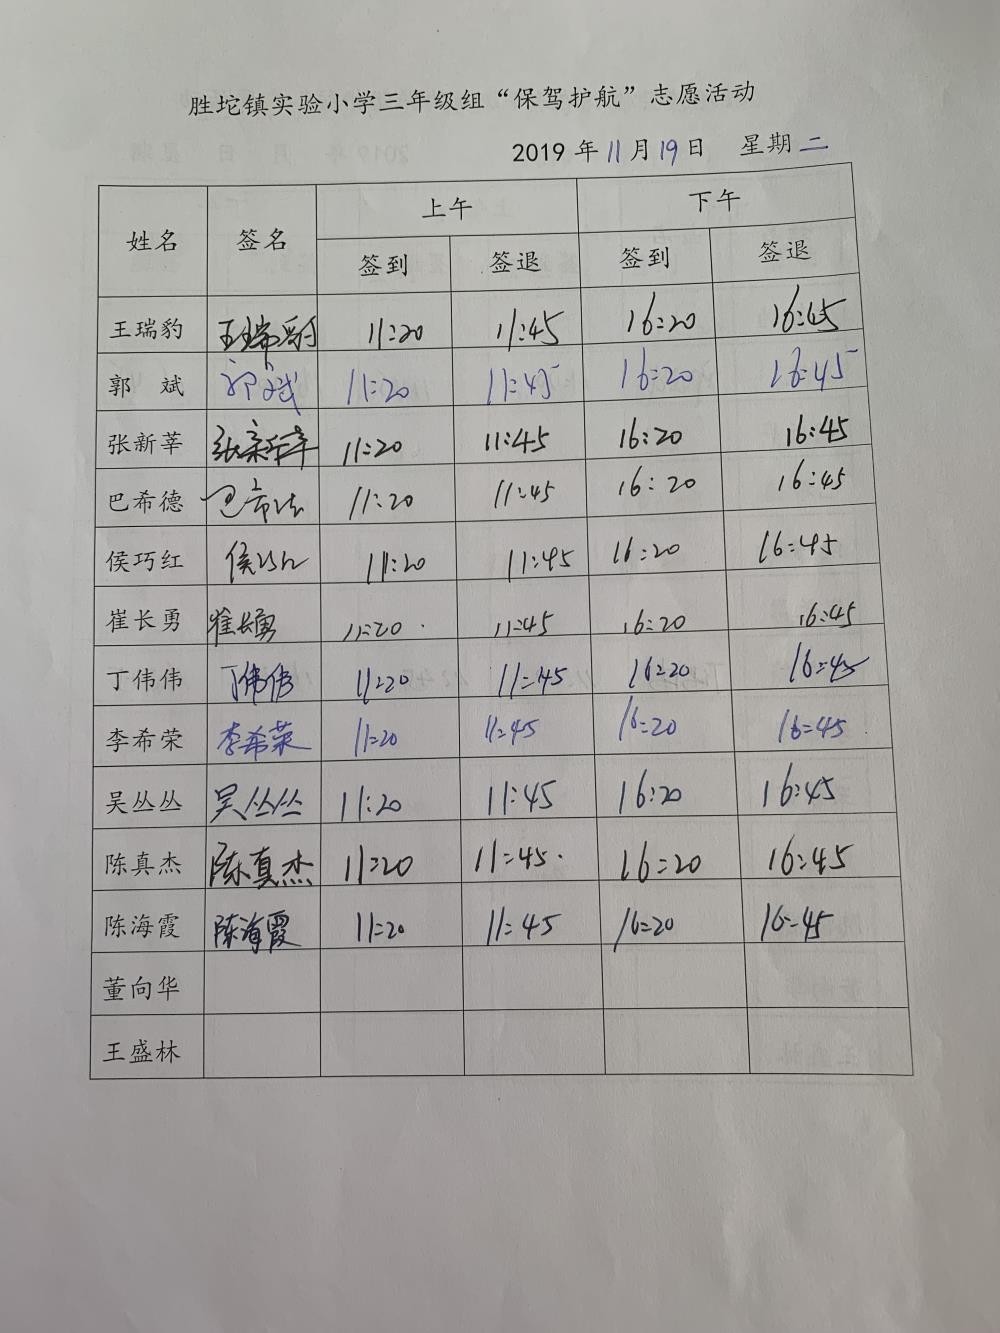 胜坨镇实验小学三年级组“保驾护航”志愿活动
2019 年 11 月 19 日 星期 二
姓名 签名 上午 下午
签到 签退 签到 签退
王瑞豹 王瑞豹 11:20 11:45 16:20 16:45
郭 斌 郭斌 11:20 11:45 16:20 16:45
张新莘 张新莘 11:20 11:45 16:20 16:45
巴希德 巴希德 11:20 11:45 16:20 16:45
侯巧红 侯巧红 11:20 11:45 16:20 16:45
崔长勇 崔长勇 11:20 11:45 16:20 16:45
丁伟伟 丁伟伟 11:20 11:45 16:20 16:45
李希荣 李希荣 11:20 11:45 16:20 16:45
吴丛丛 吴丛丛 11:20 11:45 16:20 16:45
陈真杰 陈真杰 11:20 11:45 16:20 16:45
陈海霞 陈海霞 11:20 11:45 16:20 16:45
董向华
王盛林